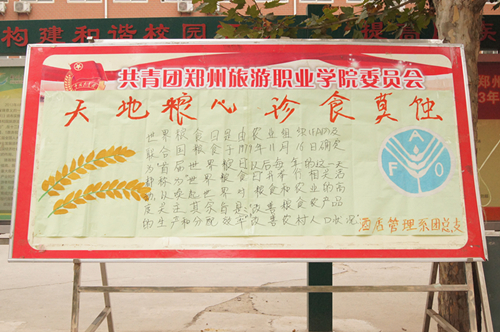 构建和谐校园
提高
共青团郑州旅游职业学院委员会
天地粮心 珍食莫蚀
世界粮食日是由农业组织(FAO)及
联合国粮食于1979年11月16日确定
为首届世界粮食日以后每年的这一天
都作为世界粮食日并举行相关活
动,以唤起世界对粮食和农业的高
度关注。其宗旨是"改善粮食农产品
的生产和分配效率""改善农村人口状况"
F A O
酒店管理系团总支